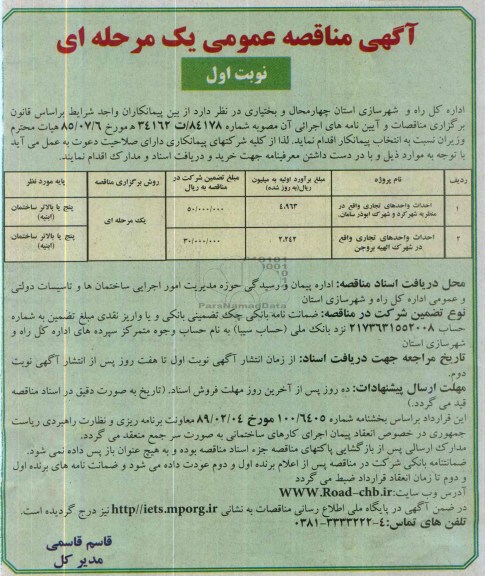 آگهی مناقصه عمومی یک مرحله ای
نوبت اول
اداره کل راه و شهرسازی استان چهارمحال و بختیاری در نظر دارد از بین پیمانکاران واجد شرایط براساس قانون
برگزاری مناقصات و آیین نامه های اجرائی آن مصوبه شماره ۸۴۱۷۸/ت ۳۴۱۶۲ ه مورخ ۸۵/۰۷/۶ هیات محترم
وزیران نسبت به انتخاب پیمانکار اقدام نماید. لذا از کلیه شرکتهای پیمانکاری دارای صلاحیت دعوت به عمل می آید
با توجه به موارد ذیل و با در دست داشتن معرفینامه جهت خرید و دریافت اسناد و مدارک اقدام نمایند.
ردیف نام پروژه مبلغ برآورد اولیه به میلیون ریال(به روز شده) مبلغ تضمین شرکت در مناقصه به ریال روش برگزاری مناقصه پایه مورد نظر
۱ احداث واحدهای تجاری واقع در منظریه شهرکرد و شهرک ابوذر سامان. ۴،۹۶۳ ۵۰/۰۰۰/۰۰۰ یک مرحله ای پنج یا بالاتر ساختمان (ابنیه)
۲ احداث واحدهای تجاری واقع در شهرک الهیه بروجن ۲،۲۴۲ ۳۰/۰۰۰/۰۰۰ پنج یا بالاتر ساختمان (ابنیه)
ParsNamadData
محل دریافت اسناد مناقصه: اداره پیمان و رسیدگی حوزه مدیریت امور اجرایی ساختمان ها و تاسیسات دولتی
و عمومی اداره کل راه و شهرسازی استان
نوع تضمین شرکت در مناقصه: ضمانت نامه بانکی چک تضمینی بانکی و یا واریز نقدی مبلغ تضمین به شماره
حساب ۲۱۷۳۶۳۱۵۵۲۰۰۸ نزد بانک ملی (حساب سیبا) به نام حساب وجوه متمرکز سپرده های اداره کل راه و
شهرسازی استان
تاریخ مراجعه جهت دریافت اسناد: از زمان انتشار آگهی نوبت اول تا هفت روز پس از انتشار آگهی نوبت
دوم.
مهلت ارسال پیشنهادات: ده روز پس از آخرین روز مهلت فروش اسناد. (تاریخ به صورت دقیق در اسناد مناقصه
قید می گردد.)
این قرارداد براساس بخشنامه شماره ۱۰۰/۶۴۰۵ مورخ ۸۹/۰۲/۰۴ معاونت برنامه ریزی و نظارت راهبردی ریاست
جمهوری در خصوص انعقاد پیمان اجرای کارهای ساختمانی به صورت سر جمع منعقد می گردد.
مدارک ارسالی پس از بازگشایی پاکتهای مناقصه جزء اسناد مناقصه بوده و به هیچ عنوان باز پس داده نمی شود.
ضمانتنامه بانکی شرکت در مناقصه پس از اعلام برنده اول و دوم عودت داده می شود و ضمانت نامه های برنده اول
و دوم تا زمان انعقاد قرارداد ضبط می گردد
آدرس وب سایت: WWW.Road-chb.ir
در ضمن آگهی در پایگاه ملی اطلاع رسانی مناقصات به نشانی http//iets.mporg.ir نیز درج گردیده است.
تلفن های تماس: ۴-۳۳۳۳۲۲۲-۰۳۸۱
قاسم قاسمی
مدیر کل